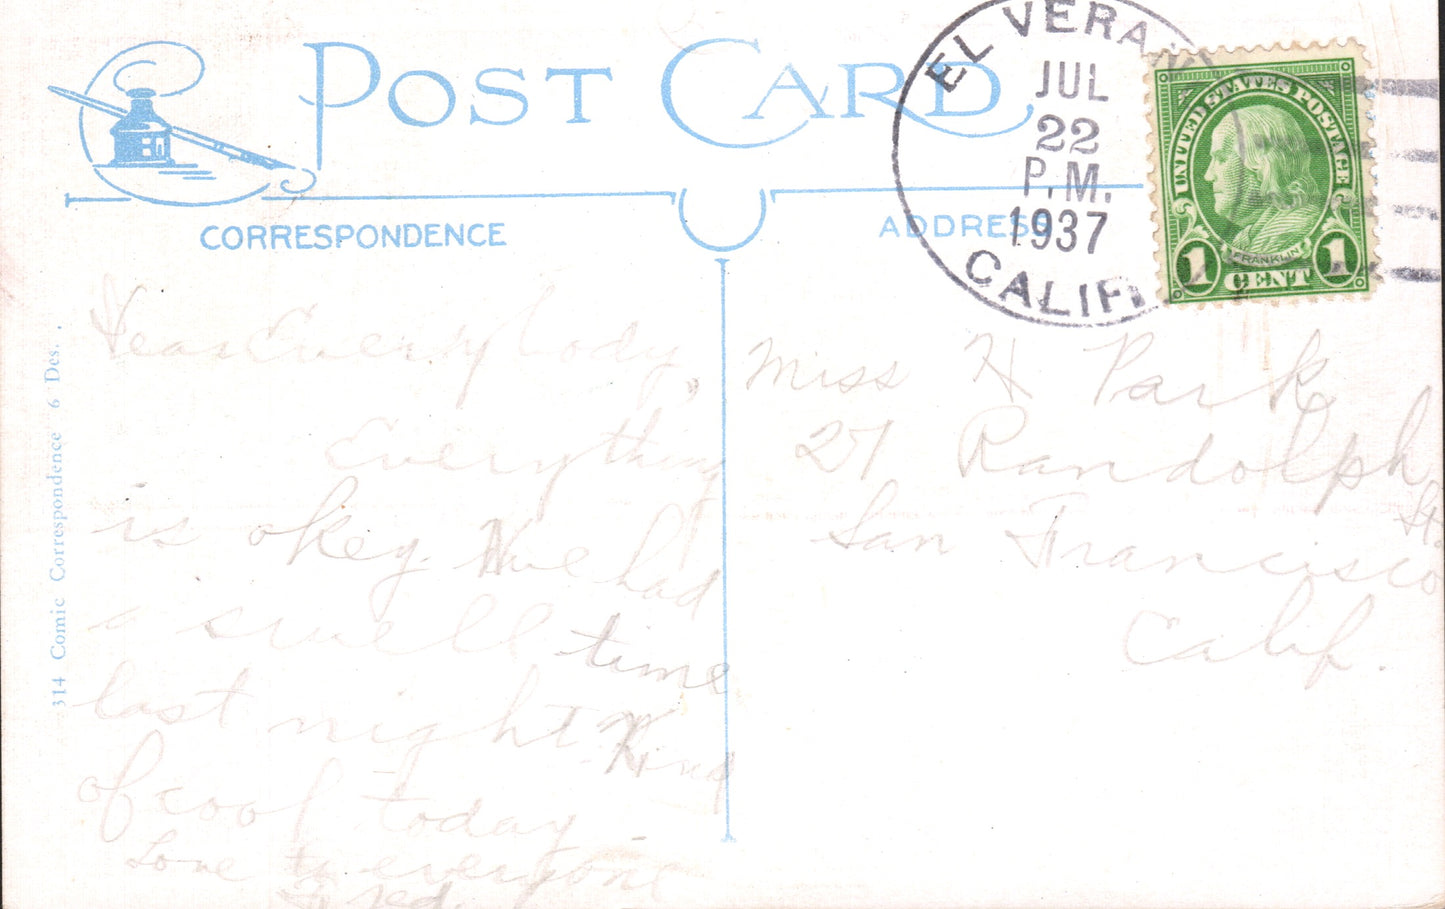 POST CARD
EL VERANO
JUL
22
P.M.
1937
CALIF.
UNITED STATES POSTAGE
FRANKLIN
1 CENT 1
CORRESPONDENCE
ADDRESS
314 Comic Correspondence 6 Des.
Dear Everybody,
Everything
is okey. We had
a swell time
last night. Kind
of cool today.
Love to everyone
Fred.
Miss H Park
27 Randolph
St.
San Francisco
Calif.